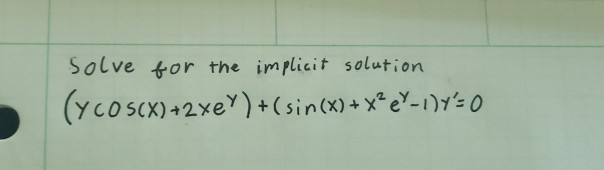 Solve for the implicit solution
(ycos(x)+2xe^y)+(sin(x)+x²e^y-1)y'=0